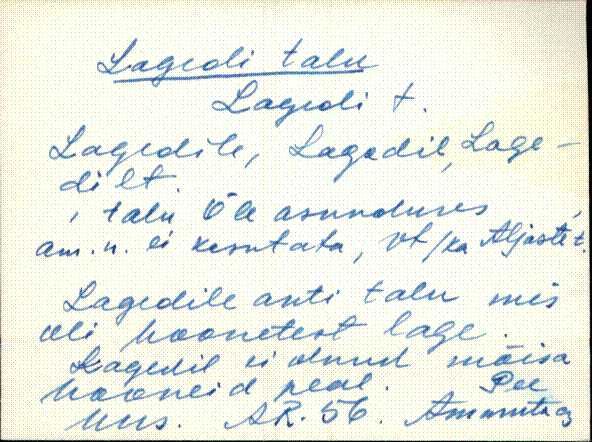 Lagedi talu
Lagedi t.
Lagedile, Lagedil, Lage-
dilt.
, talu Õle asunduses,
am. n. ei kasutata, vt/ka Aljaste t.
Lagedile anti talu mis
oli hoonetest lage.
Lagedil ei olnud mõisa
hooneid peal. Pee
hns. AR. 56.